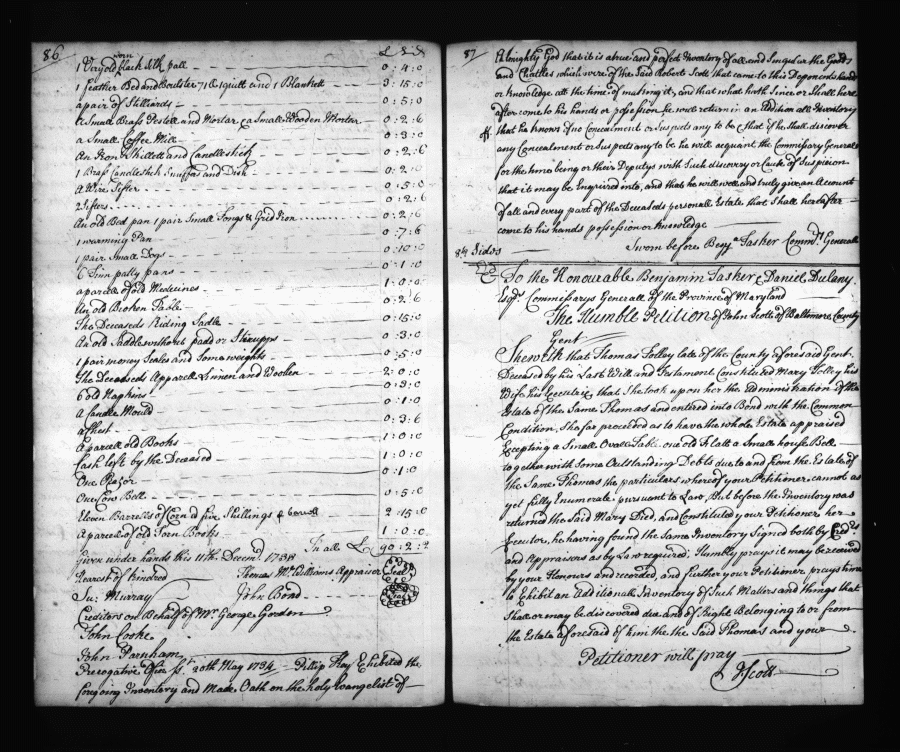 86
£ : S : D
1 Very old worn black silk pall - - - 0 : 4 : 0
1 Feather Bed and Boulster 71 lb 1 quilt and 1 Blankett - 3 : 15 : 0
a pair of Stilliards - - - 0 : 5 : 0
A Small Brass Pestell and Mortar & a Small Wooden Mortar - 0 : 2 : 6
a Small Coffee Mill - - 0 : 3 : 0
An Iron Skillett and Candlestick - 0 : 2 : 6
1 Brass Candlestick Snuffers and Dish - 0 : 2 : 0
A Wire Sifter - 0 : 5 : 0
2 Sifters - - - 0 : 2 : 6
An old Bed pan 1 pair Small Tongs & Grid Iron - - - 0 : 2 : 6
1 warming Pan - 0 : 7 : 6
1 pair Small Dogs - 0 : 10 : 0
6 Tinn patty pans - 0 : 1 : 0
a parcell of old Medicines - 1 : 0 : 0
An old Broken Table - 0 : 2 : 6
The Deceaseds Riding Sadle - 0 : 15 : 0
An old Saddle without padd or Stirrupps - 0 : 3 : 0
1 pair money Scales and Some weights - 0 : 5 : 0
The Deceaseds Apparell Linnen and Woollen - 2 : 0 : 0
6 old Napkins - 0 : 3 : 0
A Candle Mould - 0 : 1 : 0
a Chest - 0 : 3 : 6
A parcell old Books - 1 : 0 : 0
Cash left by the Deceased - 1 : 0 : 0
One Razor - 0 : 1 : 0
One Cow Bell - 0 : 5 : 0
Eleven Barrells of Corn @ five Shillings p barrell 2 : 15 : 0
A parcell of old Torn Books - 1 : 0 : 0
In all £ 90 : 2 : 2
Given under hands this 11th Decemr 1733
Nearest of kindred Thomas Mc Williams Appraiser Seal
Su: Murray John Bond - - - Seal
Creditors on Behalf of Mr George Gordon
John Cooke
John Parnham
Prerogative Office ss 20th May 1734 - Philip Key Exhibited the
foregoing Inventory and Made Oath on the holy Evangelist of
87
Almighty God that it is a true and perfect Inventory of all and Singular the Goods
and Chattles which were of the Said Robert Scott that came to this Deponents hands
or knowledge att the time of making it, and that what hath Since or Shall here
after come to his hands or possession he will return in an addition all Inventory
that he knows of no Concealment or Suspects any to be & that if he Shall discover
any Concealment or Suspects any to be he will acquant the Commissary Generall
for the time being or their Deputys with Such discovery or Cause of Suspicion
that it may be Enquired into, and that he will well and truly give an Account
of all and every part of the Deceaseds personall Estate that Shall hereafter
come to his hands possession or knowledge
Sworn before Benja Tasker Commry Generall
84 Sides
To the Honourable Benjamin Tasker & Daniel Dulany
Esqrs Commissarys Generall of the Province of Maryland
The Humble Petition of John Scott of Baltimore County
Gent
Sheweth that Thomas Tolley late of the County aforesaid Gent.
Deceased by his Last Will and Testament Constituted Mary Tolley his
Wife his Executrix that She took upon her the Administration of the
Estate of the Same Thomas and entered into Bond with the Common
Condition, & ha far proceeded as to have the whole Estate appraised
Excepting a Small Ovall Table one old & a Small house Bell
together with Some Outstanding Debts due to and from the Estate of
the Same Thomas the particulars whereof your Petitioner cannot as
yet fully Enumerate pursuant to Law, But before the Inventory was
returned the Said Mary Died, and Constituted your Petitioner her
Executor, he having found the Same Inventory Signed both by Credrs
and Appraisors as by Law required; Humbly prays it may be received
by your Honours and recorded, and further your Petitioner prays time
to Exhibit an Additional Inventory of Such Matters and things that
Shall or may be discovered due and of Right Belonging to or from
the Estate aforesaid of him the the Said Thomas and your
Petitioner will pray
J Scott